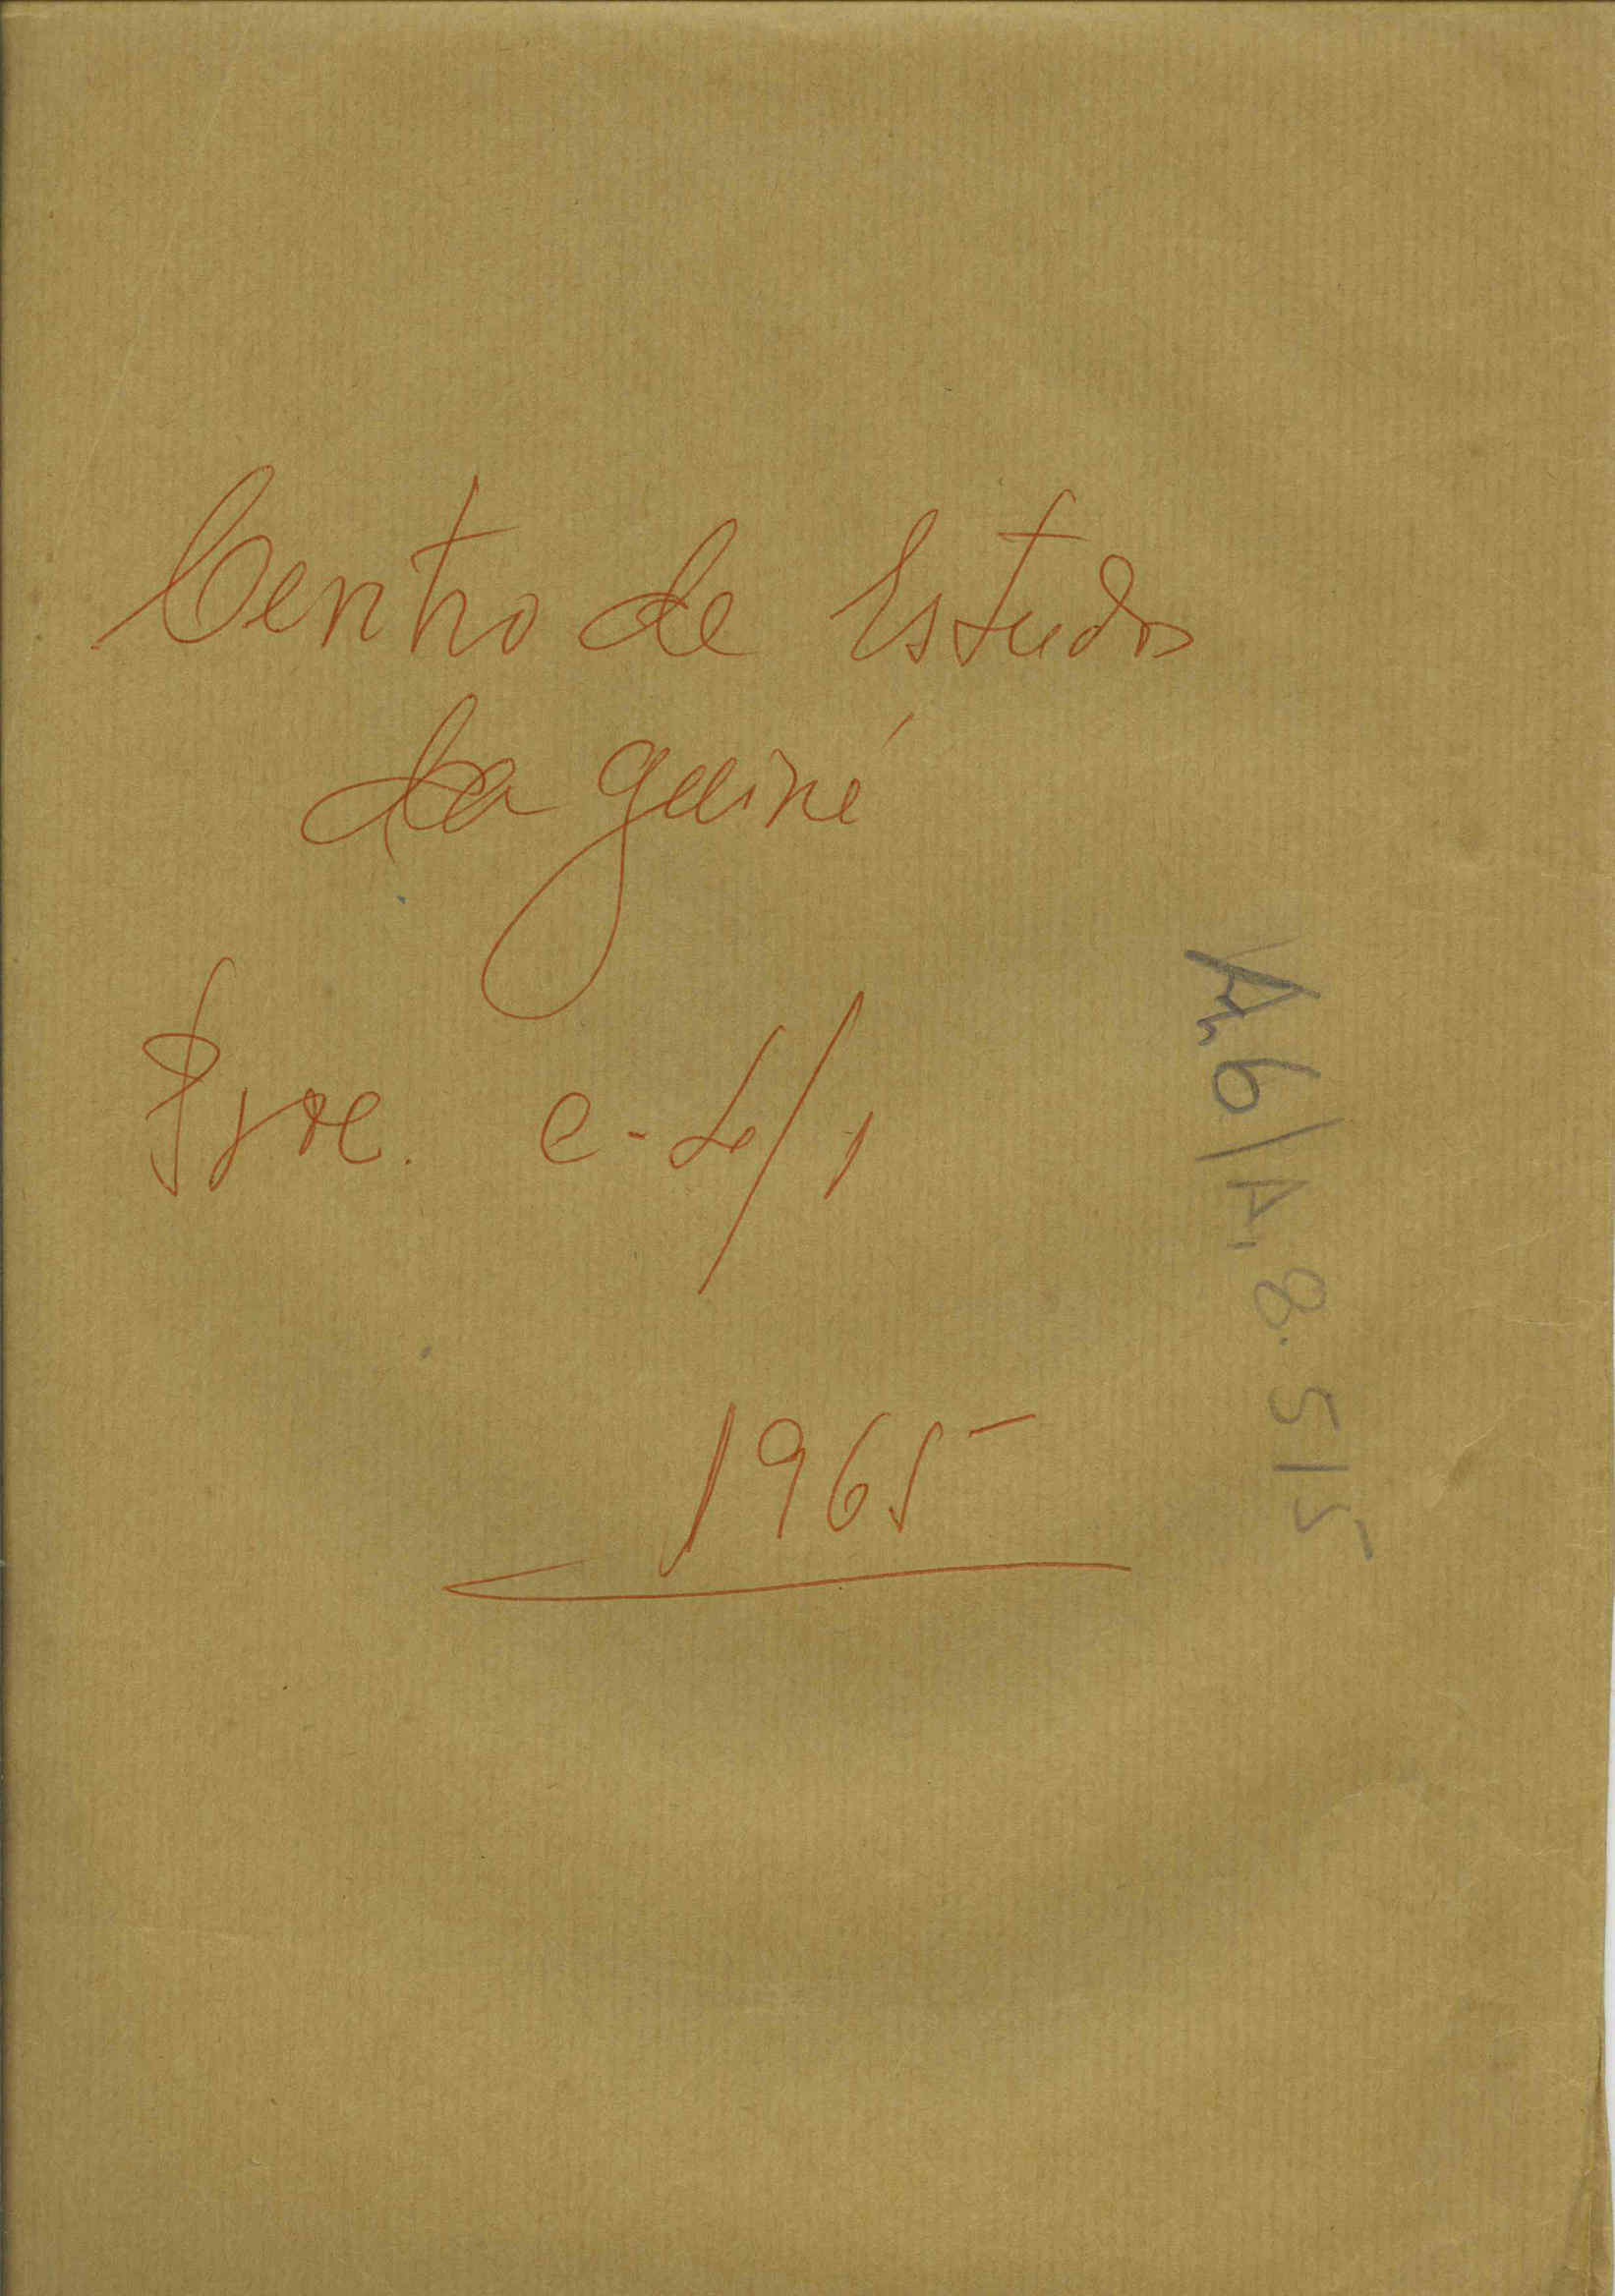 Centro de Estudos
da guiné
Proc. C-4/1
1965
A.6/A.8.5/5